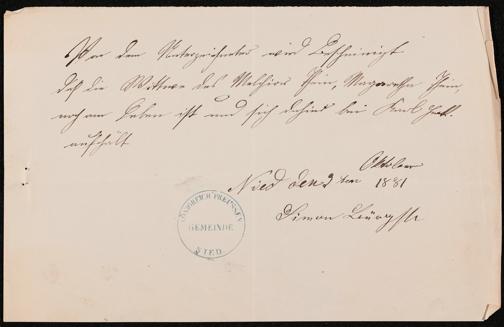 Von dem Unterzeichneten wird bescheinigt
daß die Wittwe des Melchior Thein, Margaretha Thein,
noch am Leben ist und sich dahier bei Karl
aufhält
Oktober
Nied den 3ten 1881
Simon
KÖNIGREICH PREUSSEN
GEMEINDE
NIED